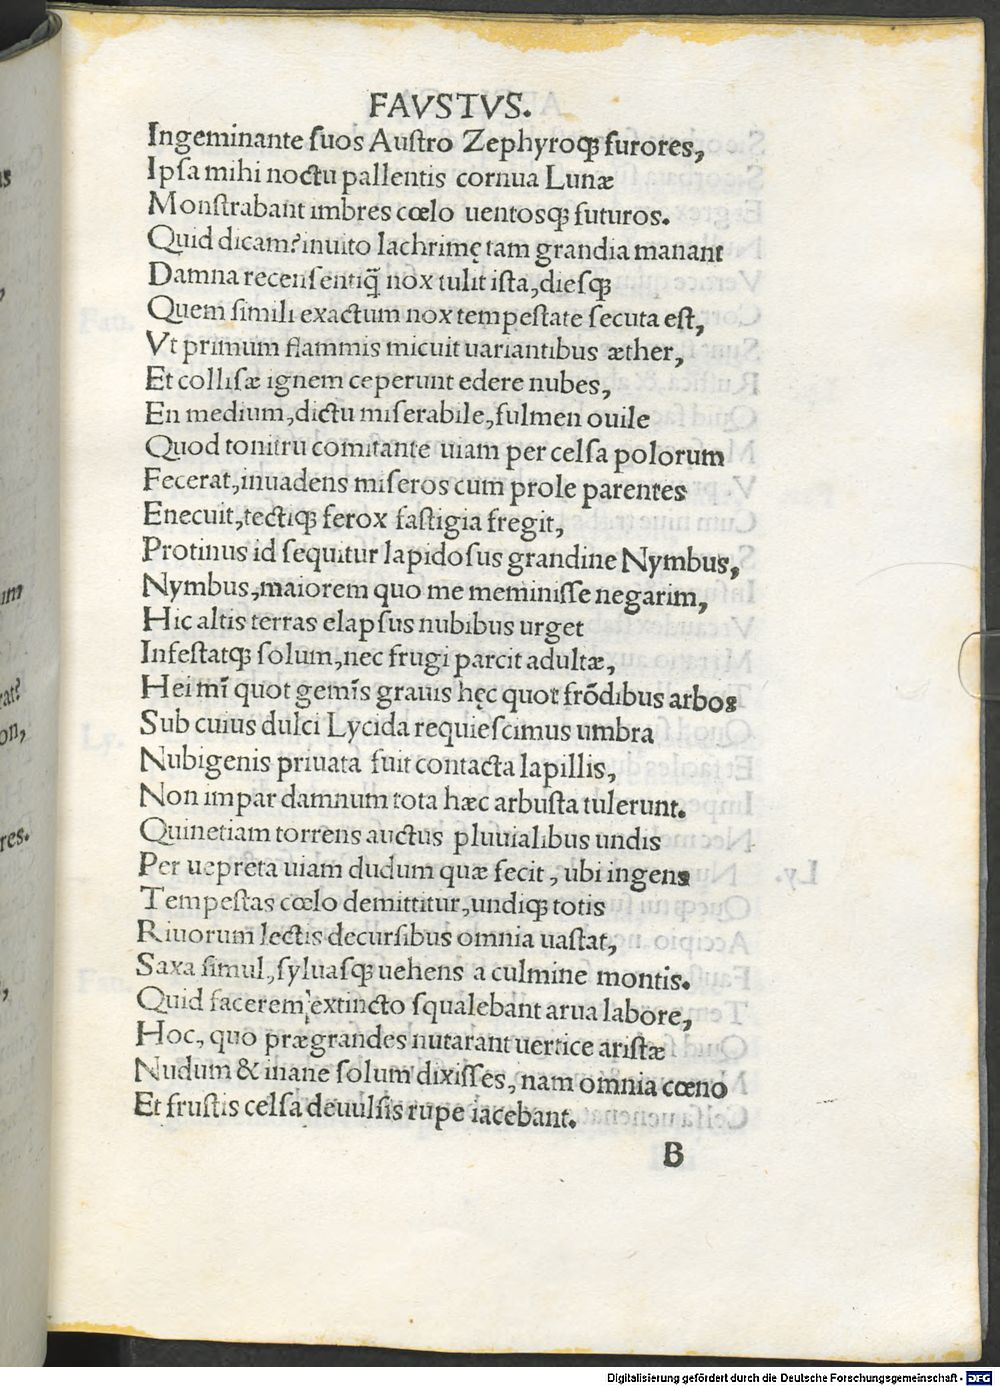 FAVSTVS.
Ingeminante suos Austro Zephyroqꝫ furores,
Ipsa mihi noctu pallentis cornua Lunæ
Monstrabant imbres cœlo uentosqꝫ futuros.
Quid dicam? inuito lachrimę tam grandia manant
Damna recensentiq̃ nox tulit ista, diesqꝫ
Quem simili exactum nox tempestate secuta est,
Vt primum flammis micuit uariantibus æther,
Et collisæ ignem ceperunt edere nubes,
En medium, dictu miserabile, fulmen ouile
Quod tonitru comitante uiam per celsa polorum
Fecerat, inuadens miseros cum prole parentes
Enecuit, tectiqꝫ ferox fastigia fregit,
Protinus id sequitur lapidosus grandine Nymbus,
Nymbus, maiorem quo me meminisse negarim,
Hic altis terras elapsus nubibus urget
Infestatqꝫ solum, nec frugi parcit adultæ,
Hei mĩ quot gemĩs grauis hęc quot frõdibus arbos
Sub cuius dulci Lycida requiescimus umbra
Nubigenis priuata fuit contacta lapillis,
Non impar damnum tota hæc arbusta tulerunt.
Quinetiam torrens auctus pluuialibus undis
Per uepreta uiam dudum quæ fecit, ubi ingens
Tempestas cœlo demittitur, undiqꝫ totis
Riuorum lectis decursibus omnia uastat,
Saxa simul, syluasqꝫ uehens a culmine montis.
Quid facerem? extincto squalebant arua labore,
Hoc, quo prægrandes nutarant uertice aristæ
Nudum & inane solum dixisses, nam omnia cœno
Et frustis celsa deuulsis rupe iacebant.
B
Digitalisierung gefördert durch die Deutsche Forschungsgemeinschaft - DFG